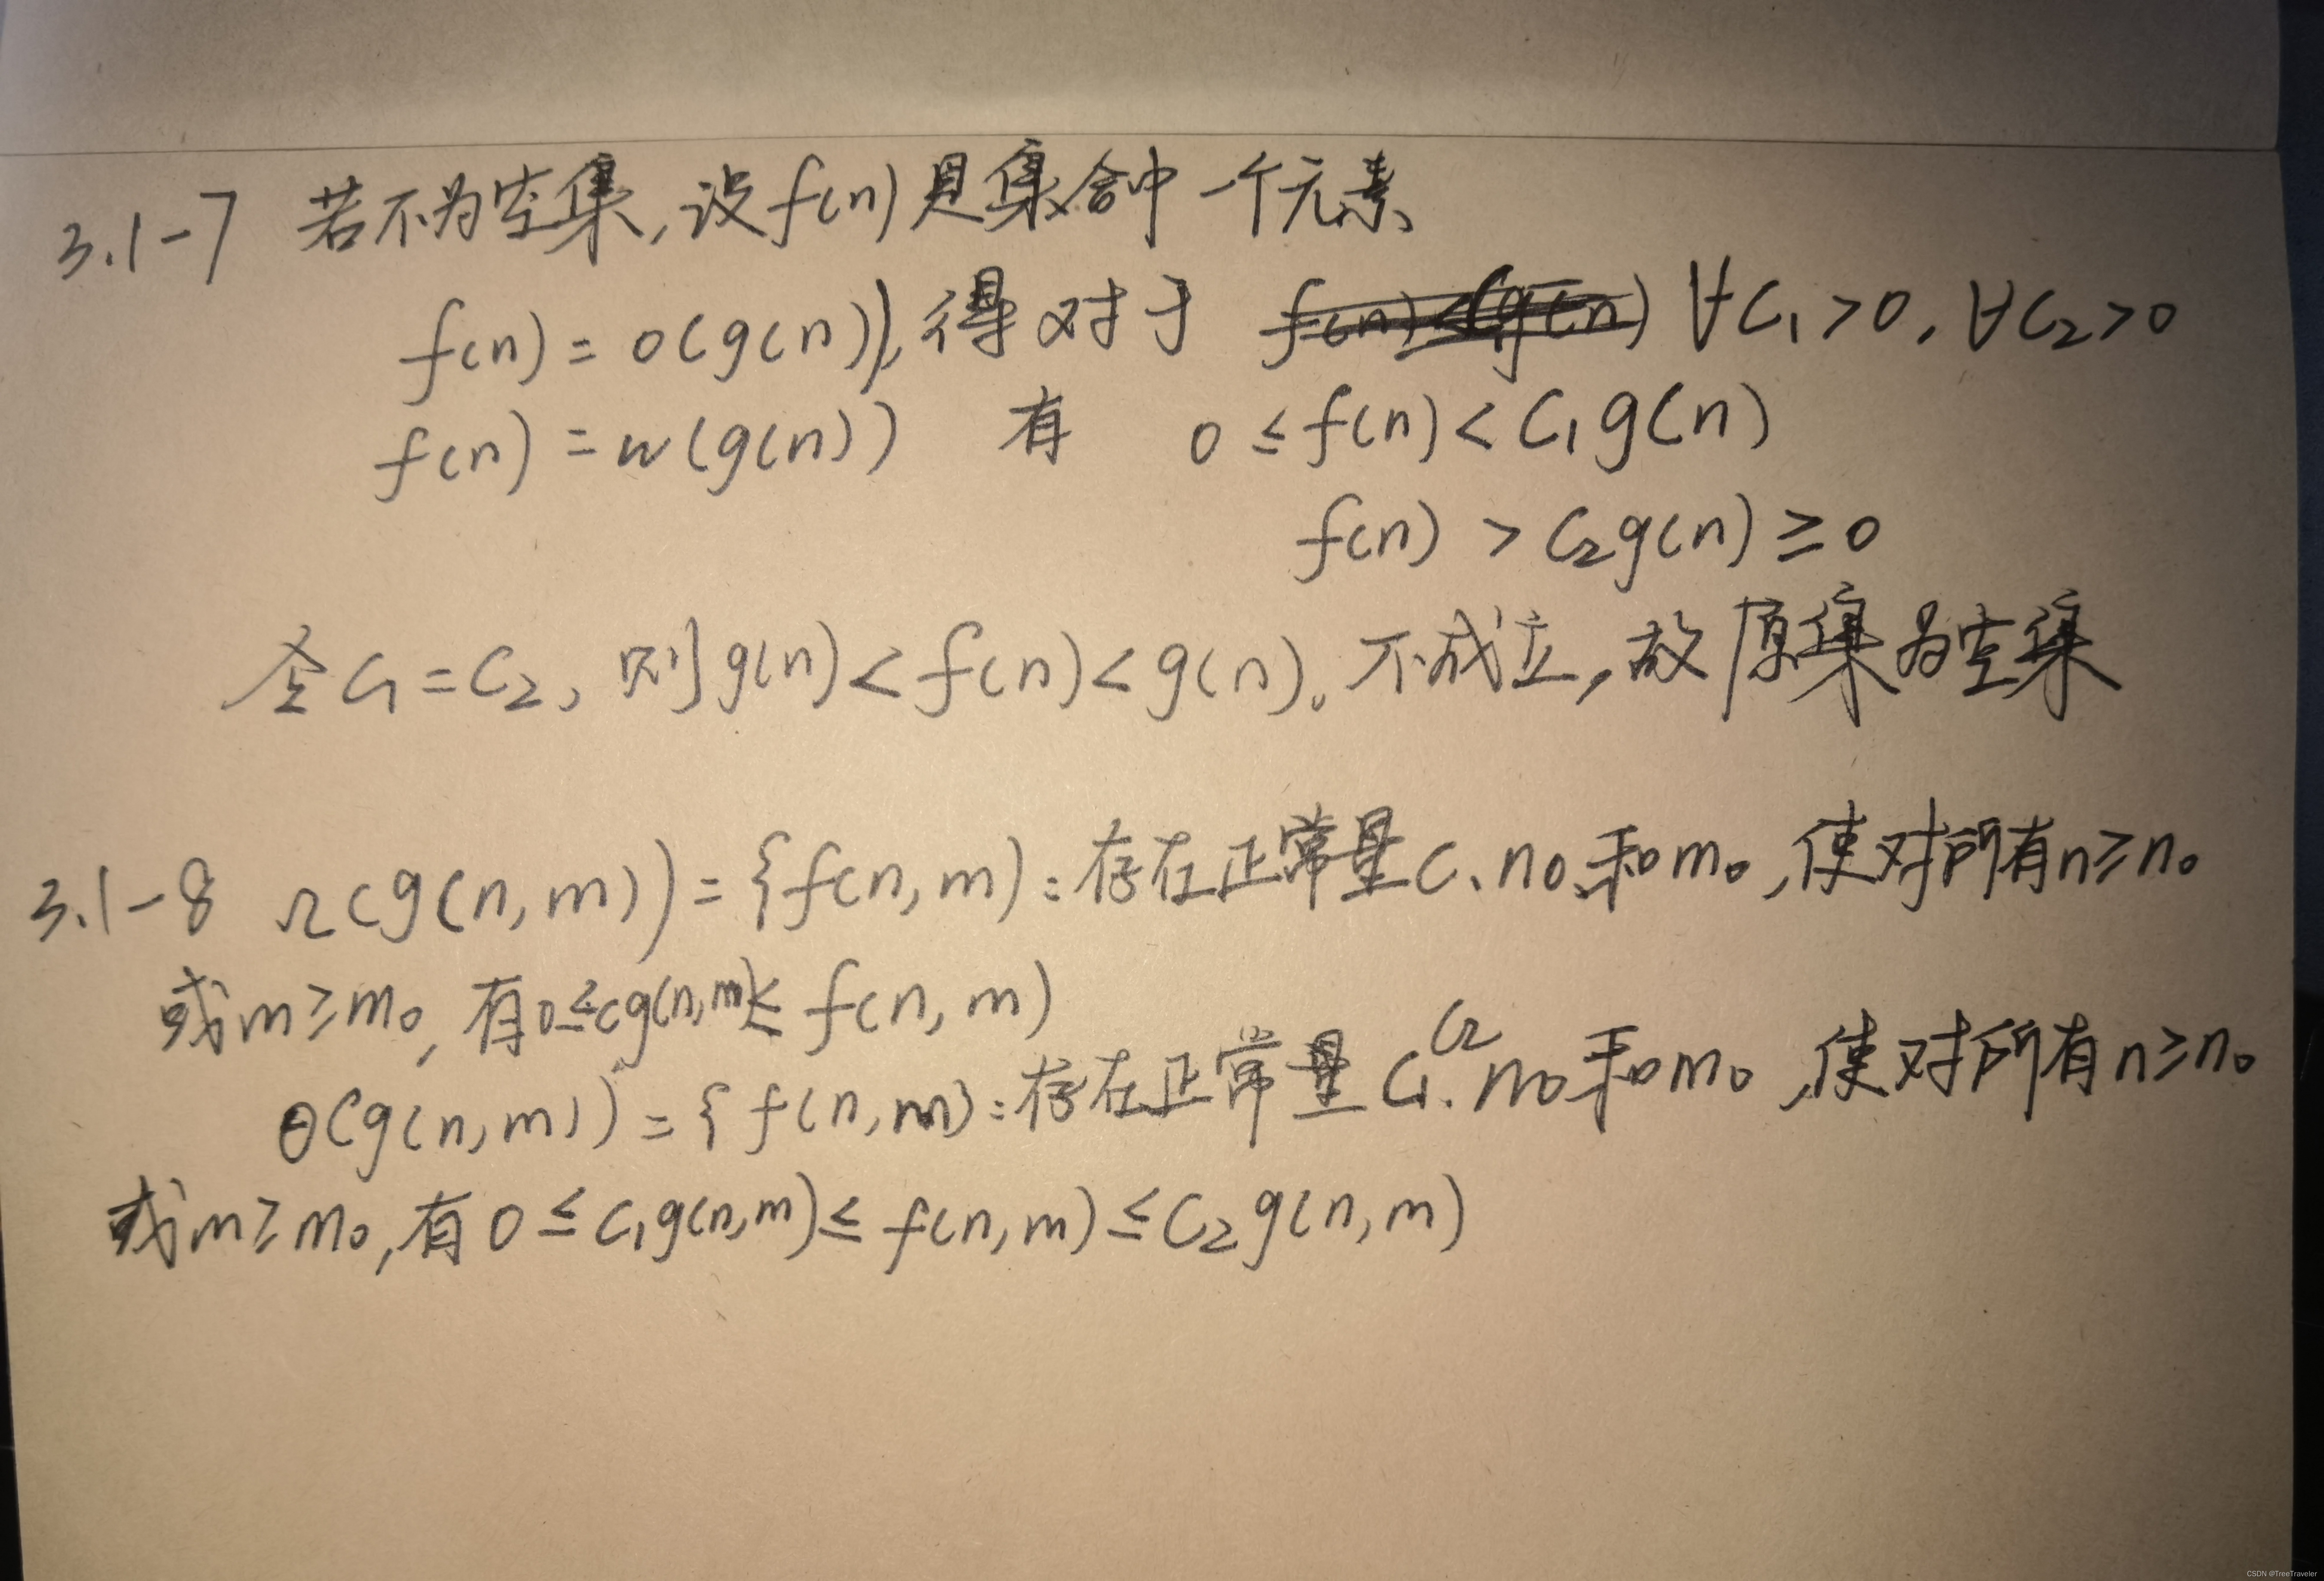 3.1-7 若不为空集,设f(n)是集合中一个元素
f(n)=o(g(n)),得对于 ∀C₁>0,∀C₂>0
f(n)=w(g(n)) 有 0≤f(n)<C₁g(n)
f(n)>C₂g(n)≥0
令C₁=C₂,则g(n)<f(n)<g(n)。不成立,故原集为空集
3.1-8 Ω(g(n,m))={f(n,m):存在正常量C、n₀和m₀,使对所有n≥n₀
或m≥m₀,有0≤cg(n,m)≤f(n,m)
Θ(g(n,m))={f(n,m):存在正常量C₁、C₂ n₀和m₀,使对所有n≥n₀
或m≥m₀,有0≤C₁g(n,m)≤f(n,m)≤C₂g(n,m)
CSDN @TreeTraveler